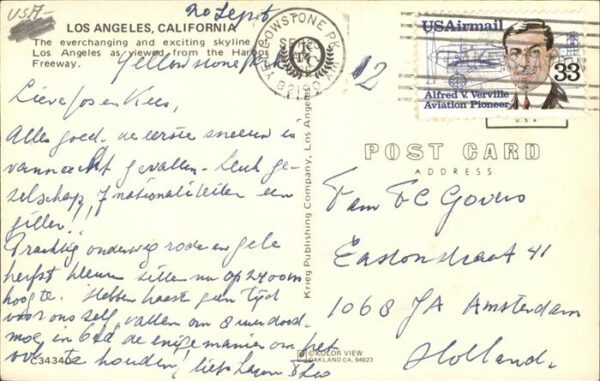 USA-
20 Sept
LOS ANGELES, CALIFORNIA
The everchanging and exciting skyline
Los Angeles as viewed from the Harbor
Freeway.
Yellowstone Park
Lieve Jos en Kees,
Alles goed. de eerste sneeuw is
vannacht gevallen. Leuk ge-
zelschap, 7 nationaliteiten een
giller!!
Prachtig onderweg rode en gele
herfst kleuren zitten nu op 2400 m
hoogte. Hebben haast geen tijd
voor ons zelf, vallen om 8 uur dood
moe in bed de enige manier om het
vol te houden! liefs
C34340
Krieg Publishing Company, Los Angeles
©KOLOR VIEW
OAKLAND CA. 94623
YELLOWSTONE PK
SEP
82190
USAirmail
33
Alfred V. Verville
Aviation Pioneer
USA
12
POST CARD
ADDRESS
Fam FC Govers
Eastonstraat 41
1068 JA Amsterdam
Holland.